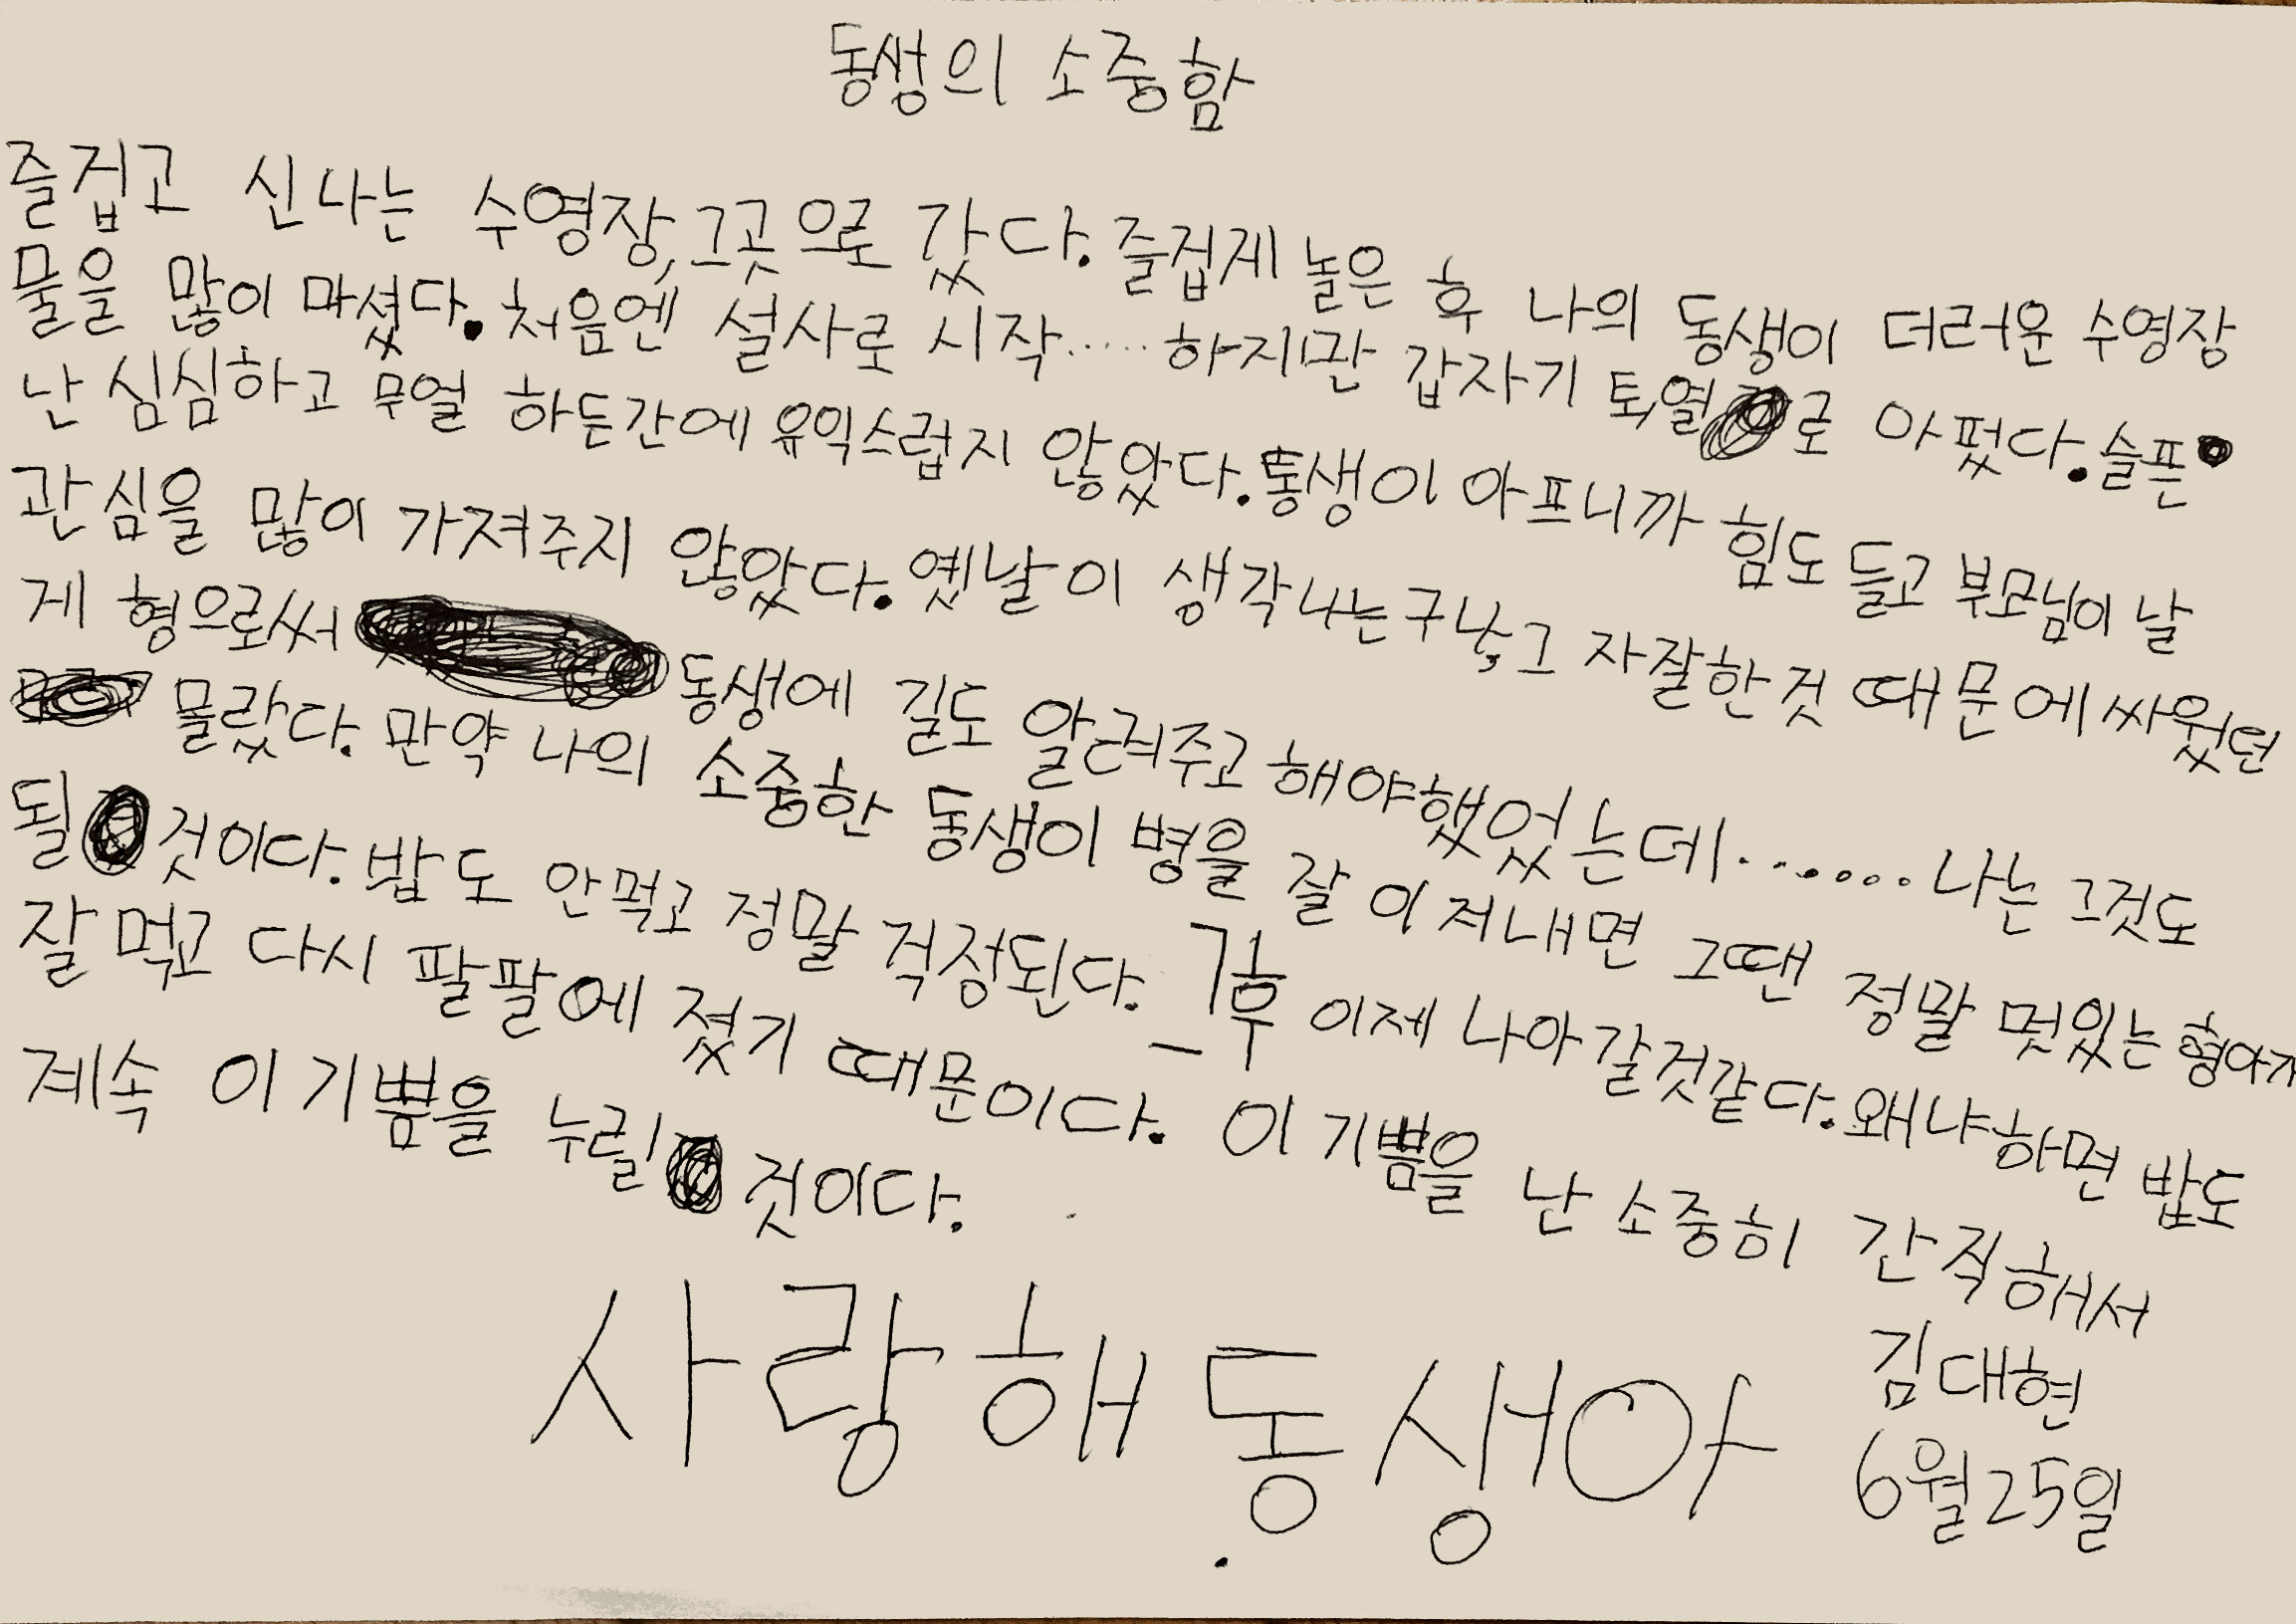 동생의 소중함
즐겁고 신나는 수영장, 그곳으로 갔다. 즐겁게 놀은 후 나의 동생이 더러운 수영장
물을 많이 마셨다. 처음엔 설사로 시작..... 하지만 갑자기 토, 열로 아펐다. 슬픈
난 심심하고 무얼 하든간에 유익스럽지 않았다. 동생이 아프니까 힘도 들고 부모님이 날
관심을 많이 가져주지 않았다. 옛날이 생각나는구나, 그 자잘한것 때문에 싸웠던
게 형으로써 동생에 길도 알려주고 해야했었는데....... 나는 그것도
몰랐다. 만약 나의 소중한 동생이 병을 잘 이겨내면 그땐 정말 멋있는 형아가
될 것이다. 밥도 안먹고 정말 걱정된다. - 7시후 이제 나아갈것같다. 왜냐하면 밥도
잘 먹고 다시 팔팔에 졌기 때문이다. 이 기쁨을 난 소중히 간직해서
계속 이 기쁨을 누릴 것이다.
사랑해 동생아
김대현
6월 25일